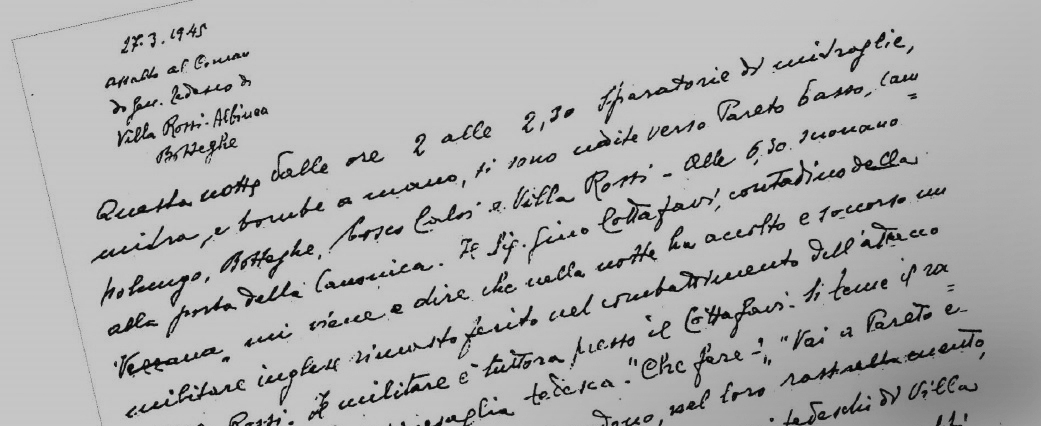 27.3.1945
assalto al Coman
do Gen. Tedesco di
Villa Rossi-Albinea
Botteghe
Questa notte dalle ore 2 alle 2,30 sparatorie di mitraglie,
mitra, e bombe a mano, si sono udite verso Pareto basso, Cam
=
polungo, Botteghe, bosco Carlos e Villa Rossi - Alle 6,30 suonano
alla porta della Canonica. Il Sig. Gino Cottafavi, contadino della
"Vezzana" mi viene a dire che nella notte ha accolto e soccorso un
militare inglese rimasto ferito nel combattimento dell'attacco
Rossi. Il militare è tuttora presso il Cottafavi. Si teme il ra
=
tedesca. "Che fare -", "Vai a Pareto e
nel loro rastrellamento,
tedeschi di Villa